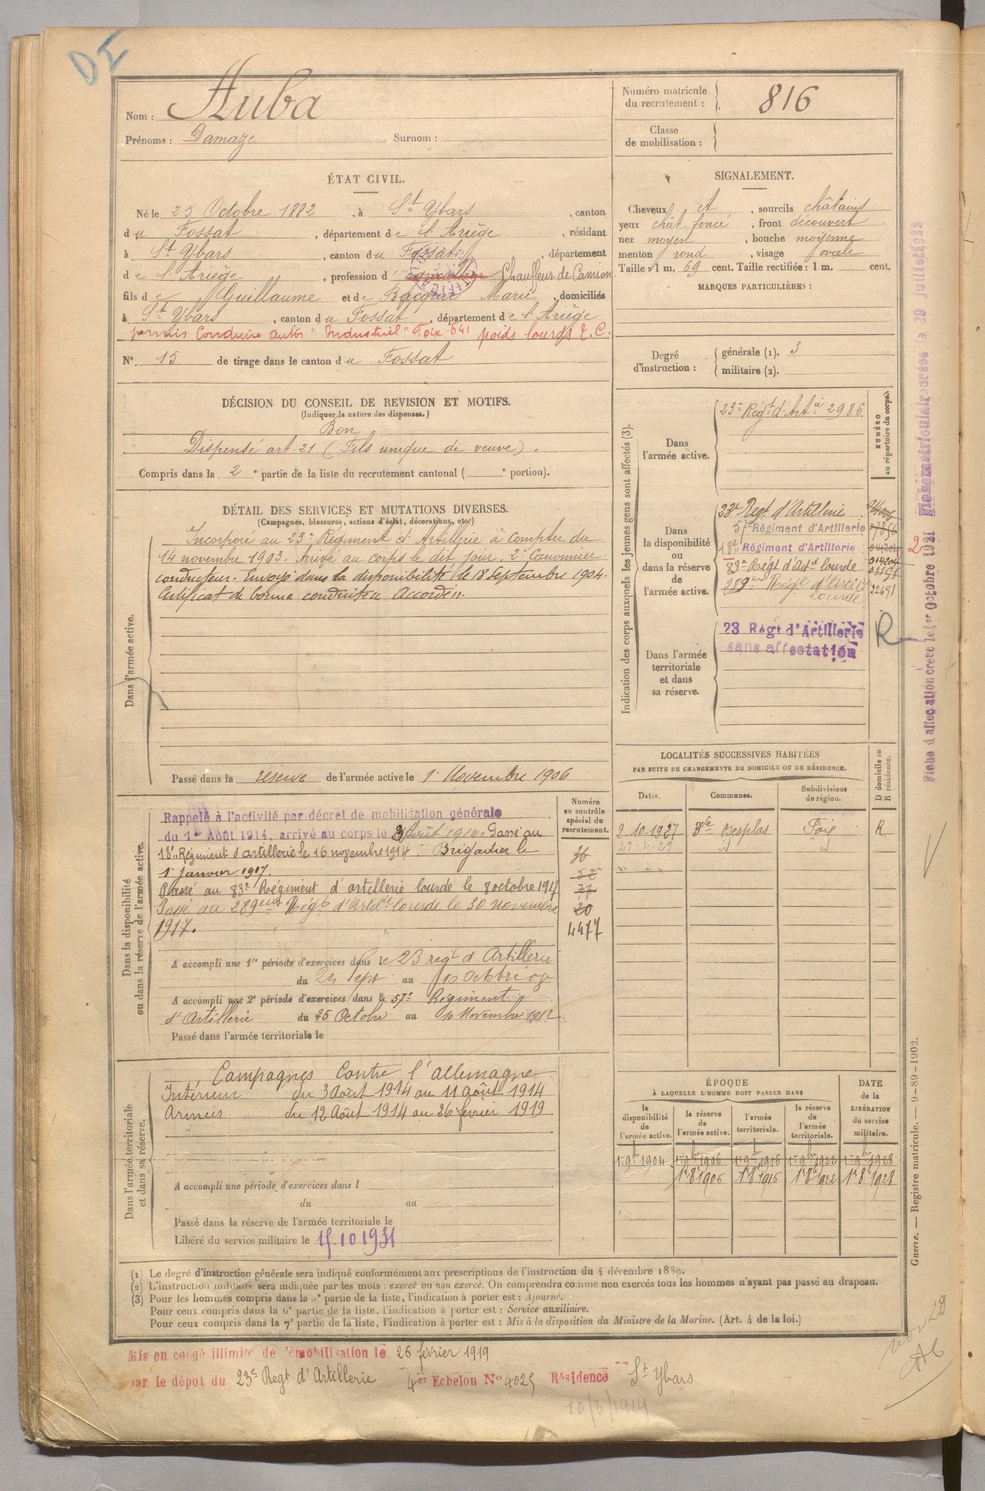 DI
Nom : Auba
Prénoms : Damaze Surnom :
Numéro matricule du recrutement : 816
Classe de mobilisation :
ÉTAT CIVIL.
Né le 25 Octobre 1882, à St Ybars, canton
du Fossat, département de l'Ariège, résidant
à St Ybars, canton du Fossat, département
de l'Ariège, profession d' Chauffeur de Camion
fils de Guillaume et de Marie, domiciliés
à St Ybars, canton du Fossat, département de l'Ariège
permis Conduire autos "Industriel" Foix 541 poids lourds E.C.
N°. 15 de tirage dans le canton du Fossat
SIGNALEMENT.
Cheveux et, sourcils châtains
yeux chât foncé, front découvert
nez moyen, bouche moyenne
menton rond, visage ovale
Taille : 1 m. 69 cent. Taille rectifiée : 1 m. cent.
MARQUES PARTICULIÈRES :
Degré d'instruction : générale (1). 3
militaire (2).
DÉCISION DU CONSEIL DE REVISION ET MOTIFS.
(Indiquer la nature des dispenses.)
Bon
Dispensé art. 21 (Fils unique de veuve).
Compris dans la 2e partie de la liste du recrutement cantonal ( e portion).
DÉTAIL DES SERVICES ET MUTATIONS DIVERSES.
(Campagnes, blessures, actions d'éclat, décorations, etc.)
Dans l'armée active.
Incorporé au 23e Régiment d'Artillerie à compter du
14 novembre 1903. Arrivé au corps le dit jour. 2e Canonnier
conducteur. Envoyé dans la disponibilité le 18 Septembre 1904.
Certificat de bonne conduite Accordé.
Passé dans la réserve de l'armée active le 1er Novembre 1906
Indication des corps auxquels les jeunes gens sont affectés (3).
NUMÉRO au répertoire du corps.
Dans l'armée active.
23e Régt d'Artie 2986
Dans la disponibilité ou dans la réserve de l'armée active.
23e Regt d'Artillerie
57e Régiment d'Artillerie
18e Régiment d'Artillerie
83e Regt d'Artie lourde
289e Regt d'Artie lourde 22491
Dans l'armée territoriale et dans sa réserve.
23 Régt d'Artillerie
sans affectation
R
Fiche d'affectation créée le 1er Octobre 1921
Fiche matriculaire créée le 29 juillet 1922
Dans la disponibilité ou dans la réserve de l'armée active.
Numéro au contrôle spécial du recrutement.
Rappelé à l'activité par décret de mobilisation générale
du 1er Août 1914, arrivé au corps le 3 Août 1914. Passé au
18e Régiment d'artillerie le 16 novembre 1914. Brigadier le
1er Janvier 1917.
Passé au 83e Régiment d'artillerie lourde le 8 octobre 1917
Passé au 289eme Régt d'Artillie lourde le 30 Novembre
1917.
20
4477
A accompli une 1re période d'exercices dans le 23 regt d'Artillerie
du 24 Sept au 10 Octobre 09
A accompli une 2e période d'exercices dans le 57e Régiment
d'Artillerie du 25 Octobre au 10 Novembre 1912
Passé dans l'armée territoriale le
LOCALITÉS SUCCESSIVES HABITÉES
PAR SUITE DE CHANGEMENTS DE DOMICILE OU DE RÉSIDENCE.
Dates. Communes. Subdivisions de région. D domicile ou R résidence.
2.10.1927 Bde Besplas Foix R
Dans l'armée territoriale et dans sa réserve.
Campagnes Contre l'allemagne
Intérieur du 3 Août 1914 au 11 août 1914
Armées du 12 Août 1914 au 26 février 1919
A accompli une période d'exercices dans l
du au
Passé dans la réserve de l'armée territoriale le
Libéré du service militaire le 15.10.1931
ÉPOQUE
À LAQUELLE L'HOMME DOIT PASSER DANS
la disponibilité de l'armée active.
la réserve de l'armée active.
l'armée territoriale.
la réserve de l'armée territoriale.
DATE de la LIBÉRATION du service militaire.
1er 9bre 1904 1er 9bre 1906 1er 9bre 1916 1er 9bre 1922 1er 9bre 1928
1er 8bre 1906 1er 8bre 1916 1er 8bre 1922 1er 8bre 1928
Guerre. — Registre matricule. — 9-89-1902.
(1) Le degré d'instruction générale sera indiqué conformément aux prescriptions de l'instruction du 4 décembre 1889.
(2) L'instruction militaire sera indiquée par les mots : exercé ou non exercé. On comprendra comme non exercés tous les hommes n'ayant pas passé au drapeau.
(3) Pour les hommes compris dans la 4e partie de la liste, l'indication à porter est : Ajourné.
Pour ceux compris dans la 6e partie de la liste, l'indication à porter est : Service auxiliaire.
Pour ceux compris dans la 7e partie de la liste, l'indication à porter est : Mis à la disposition du Ministre de la Marine. (Art. 4 de la loi.)
Mis en congé illimité de démobilisation le 26 février 1919
par le dépot du 23e Regt d'Artillerie 4er Echelon N° 4025 Résidence St Ybars
10/3/1919